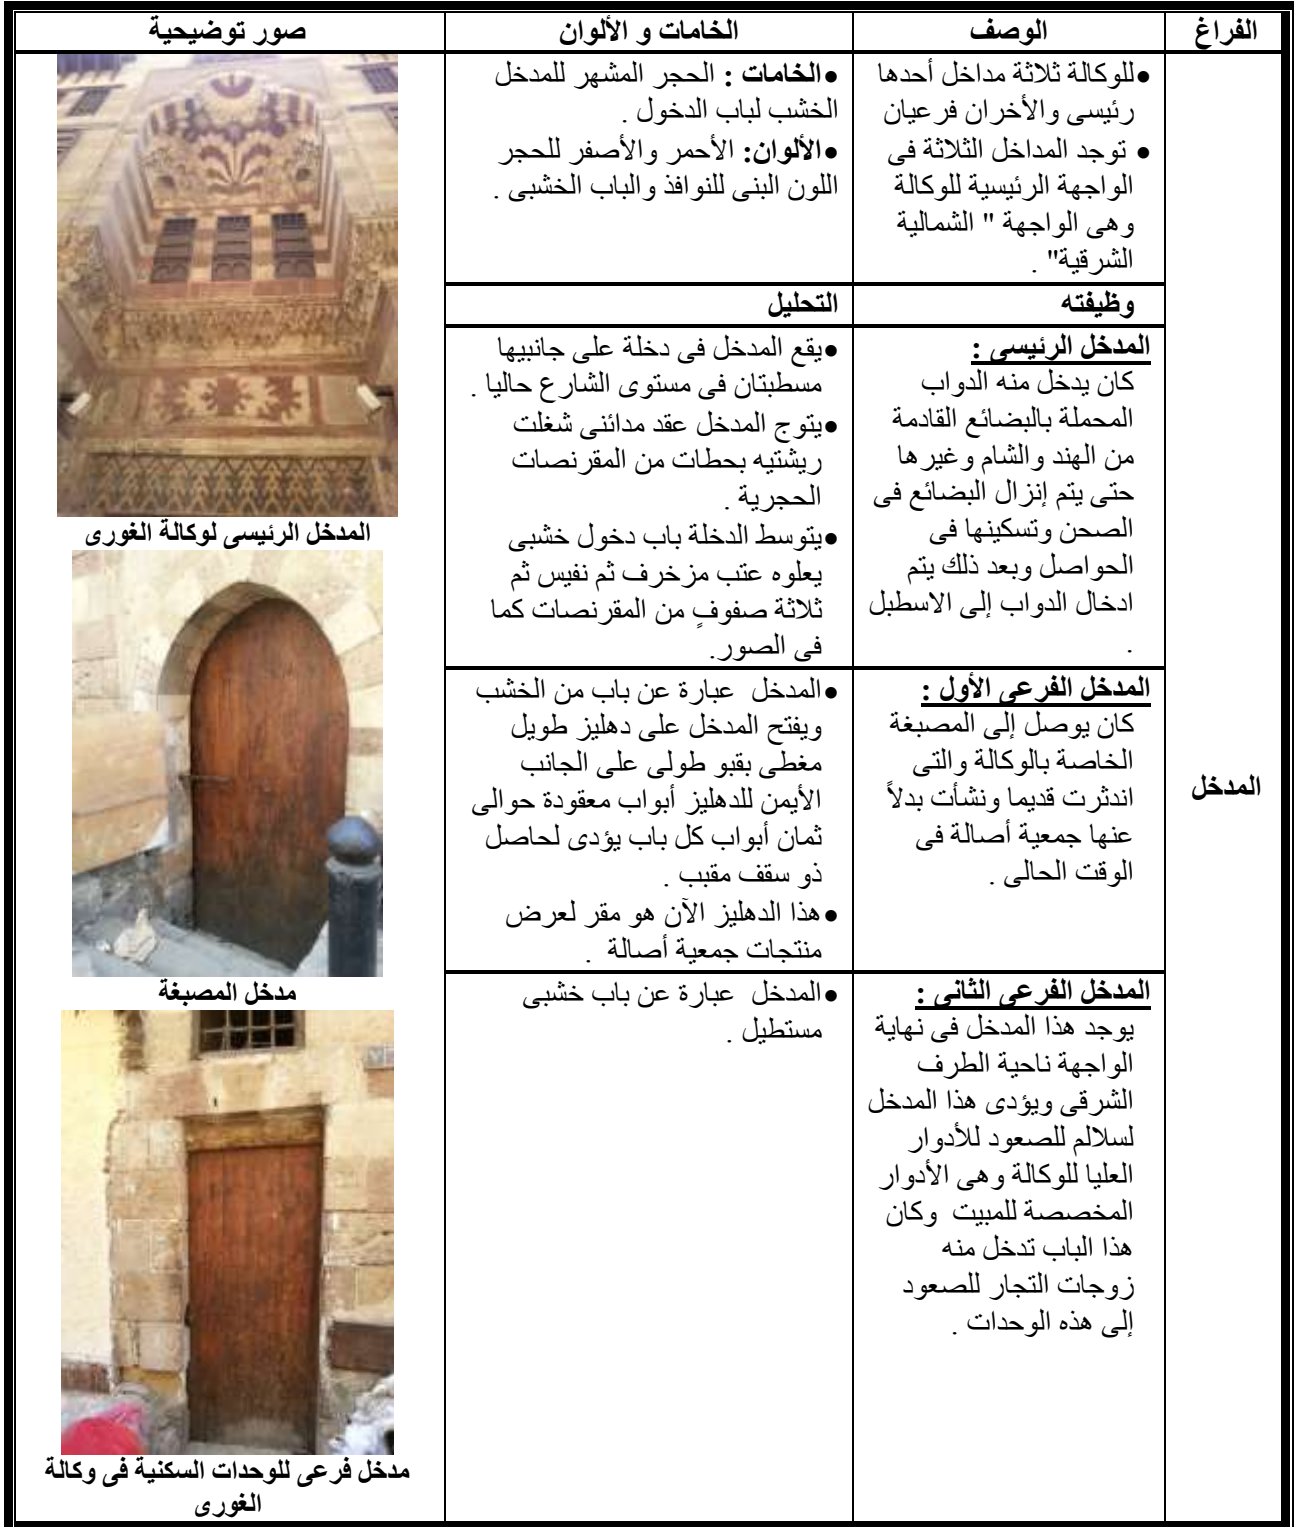 الفراغ
الوصف
الخامات و الألوان
صور توضيحية
المدخل
●للوكالة ثلاثة مداخل أحدها
رئيسى والأخران فرعيان
● توجد المداخل الثلاثة فى
الواجهة الرئيسية للوكالة
وهى الواجهة " الشمالية
الشرقية" .
●الخامات : الحجر المشهر للمدخل
الخشب لباب الدخول .
●الألوان: الأحمر والأصفر للحجر
اللون البنى للنوافذ والباب الخشبى .
وظيفته
التحليل
المدخل الرئيسى :
كان يدخل منه الدواب
المحملة بالبضائع القادمة
من الهند والشام وغيرها
حتى يتم إنزال البضائع فى
الصحن وتسكينها فى
الحواصل وبعد ذلك يتم
ادخال الدواب إلى الاسطبل
.
●يقع المدخل فى دخلة على جانبيها
مسطبتان فى مستوى الشارع حاليا .
●يتوج المدخل عقد مدائنى شغلت
ريشتيه بحطات من المقرنصات
الحجرية .
●يتوسط الدخلة باب دخول خشبى
يعلوه عتب مزخرف ثم نفيس ثم
ثلاثة صفوفٍ من المقرنصات كما
فى الصور.
المدخل الفرعى الأول :
كان يوصل إلى المصبغة
الخاصة بالوكالة والتى
اندثرت قديما ونشأت بدلاً
عنها جمعية أصالة فى
الوقت الحالى .
●المدخل عبارة عن باب من الخشب
ويفتح المدخل على دهليز طويل
مغطى بقبو طولى على الجانب
الأيمن للدهليز أبواب معقودة حوالى
ثمان أبواب كل باب يؤدى لحاصل
ذو سقف مقبب .
●هذا الدهليز الآن هو مقر لعرض
منتجات جمعية أصالة .
المدخل الفرعى الثانى :
يوجد هذا المدخل فى نهاية
الواجهة ناحية الطرف
الشرقى ويؤدى هذا المدخل
لسلالم للصعود للأدوار
العليا للوكالة وهى الأدوار
المخصصة للمبيت وكان
هذا الباب تدخل منه
زوجات التجار للصعود
إلى هذه الوحدات .
●المدخل عبارة عن باب خشبى
مستطيل .
المدخل الرئيسى لوكالة الغورى
مدخل المصبغة
مدخل فرعى للوحدات السكنية فى وكالة
الغورى